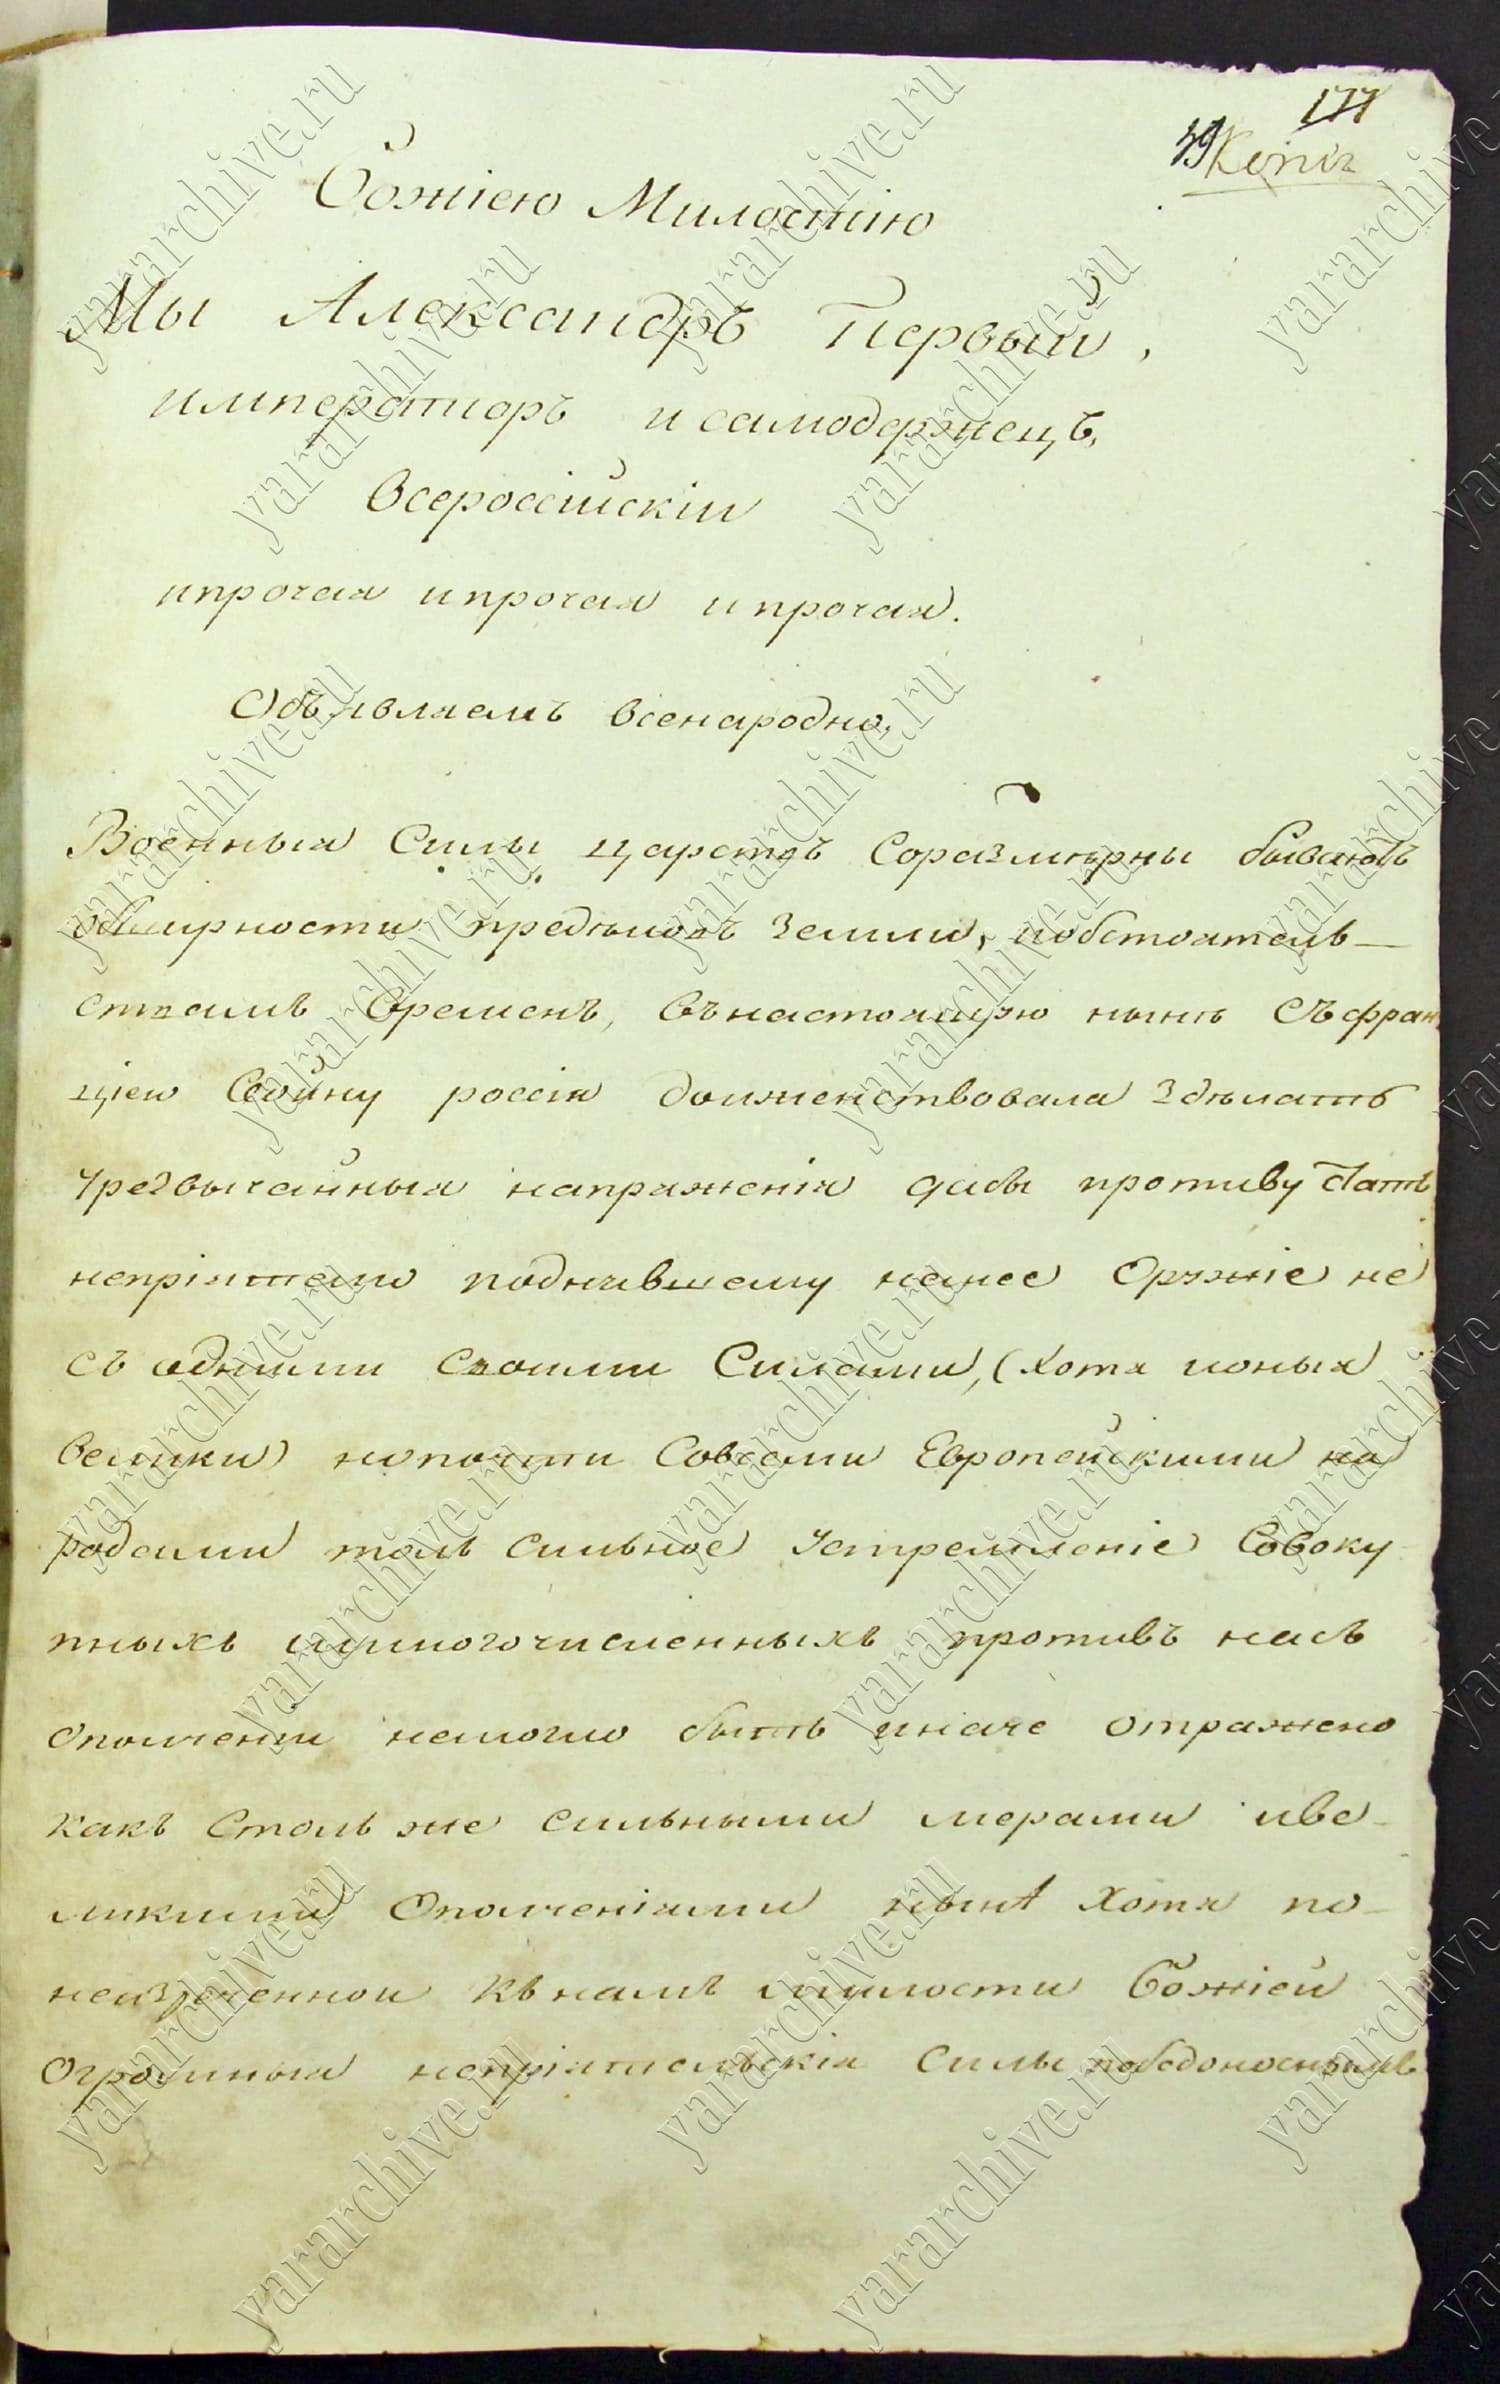 177
49 Копiя
Божiею Милостiю
Мы Александръ Первый,
императоръ и самодержецъ,
Всероссiйскiи
ипрочая ипрочая ипрочая.
Объявляемъ всенародно,
Военныя Силы царствъ Соразмѣрны бываютъ
обширности предѣловъ Земли, иобстоятель-
ствамъ Временъ, Внастоящую нынѣ Съфран
цiею Войну россiя долженствовала Здѣлать
Чрезвычайныя напряженiя дабы противу стать
непрiятелю поднявшему нанее Оружiе не
съ одними Своими Силами, (хотя ионыя
велики) нопочти Совсеми Европейскими на
родами толь сильное Устремленiе Совоку
пныхъ имногочисленныхъ противъ насъ
Ополченiи немогло быть иначе отражено
какъ Столь же сильными мерами иве-
ликими Ополченiями нынѣ Хотя по-
неизреченнои къ намъ милости Божiей
Огромныя непрiятельскiя Силы победоноснымъ
yararchive.ru